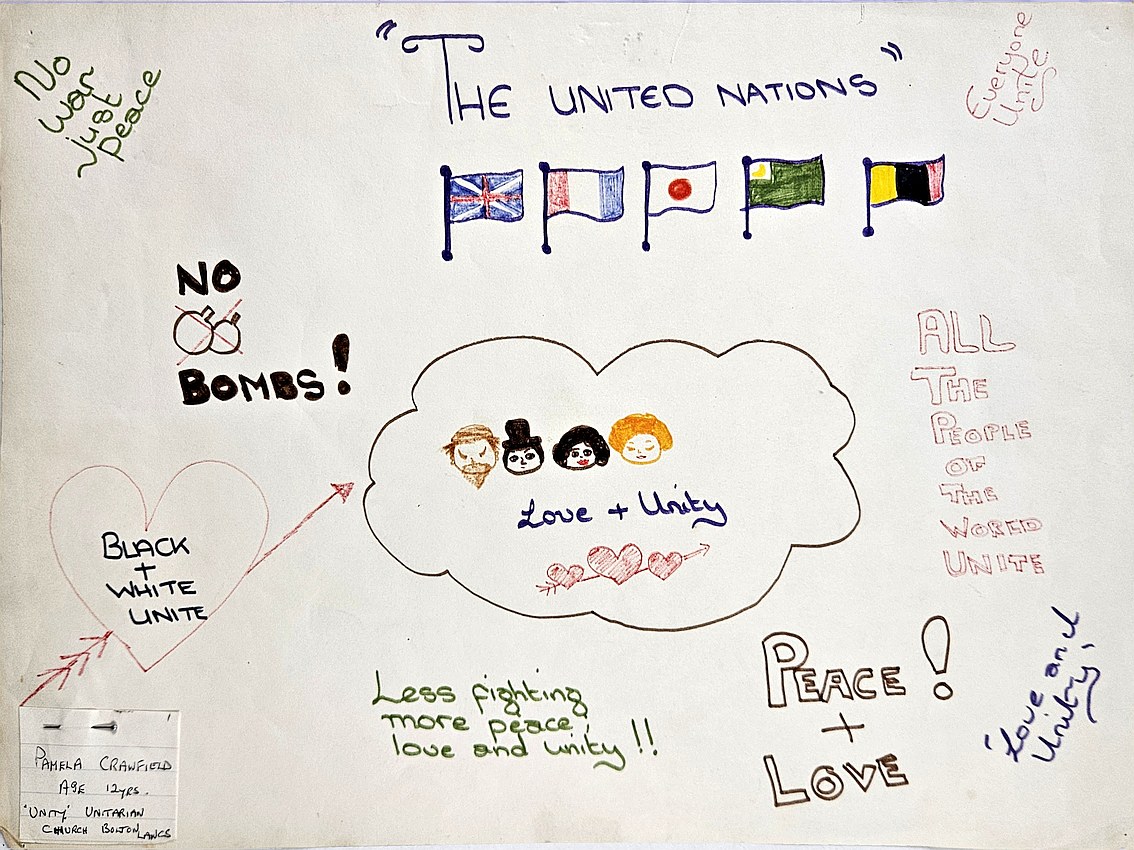 "THE UNITED NATIONS"
No
war
just
peace
Everyone
Unite
NO
BOMBS!
ALL
THE
PEOPLE
OF
THE
WORLD
UNITE
Love + Unity
BLACK
+
WHITE
UNITE
Less fighting
more peace,
love and unity!!
PEACE!
+
LOVE
'Love and
Unity'
PAMELA CRAWFIELD
AGE 12YRS.
'UNITY' UNITARIAN
CHURCH BOLTON LANCS